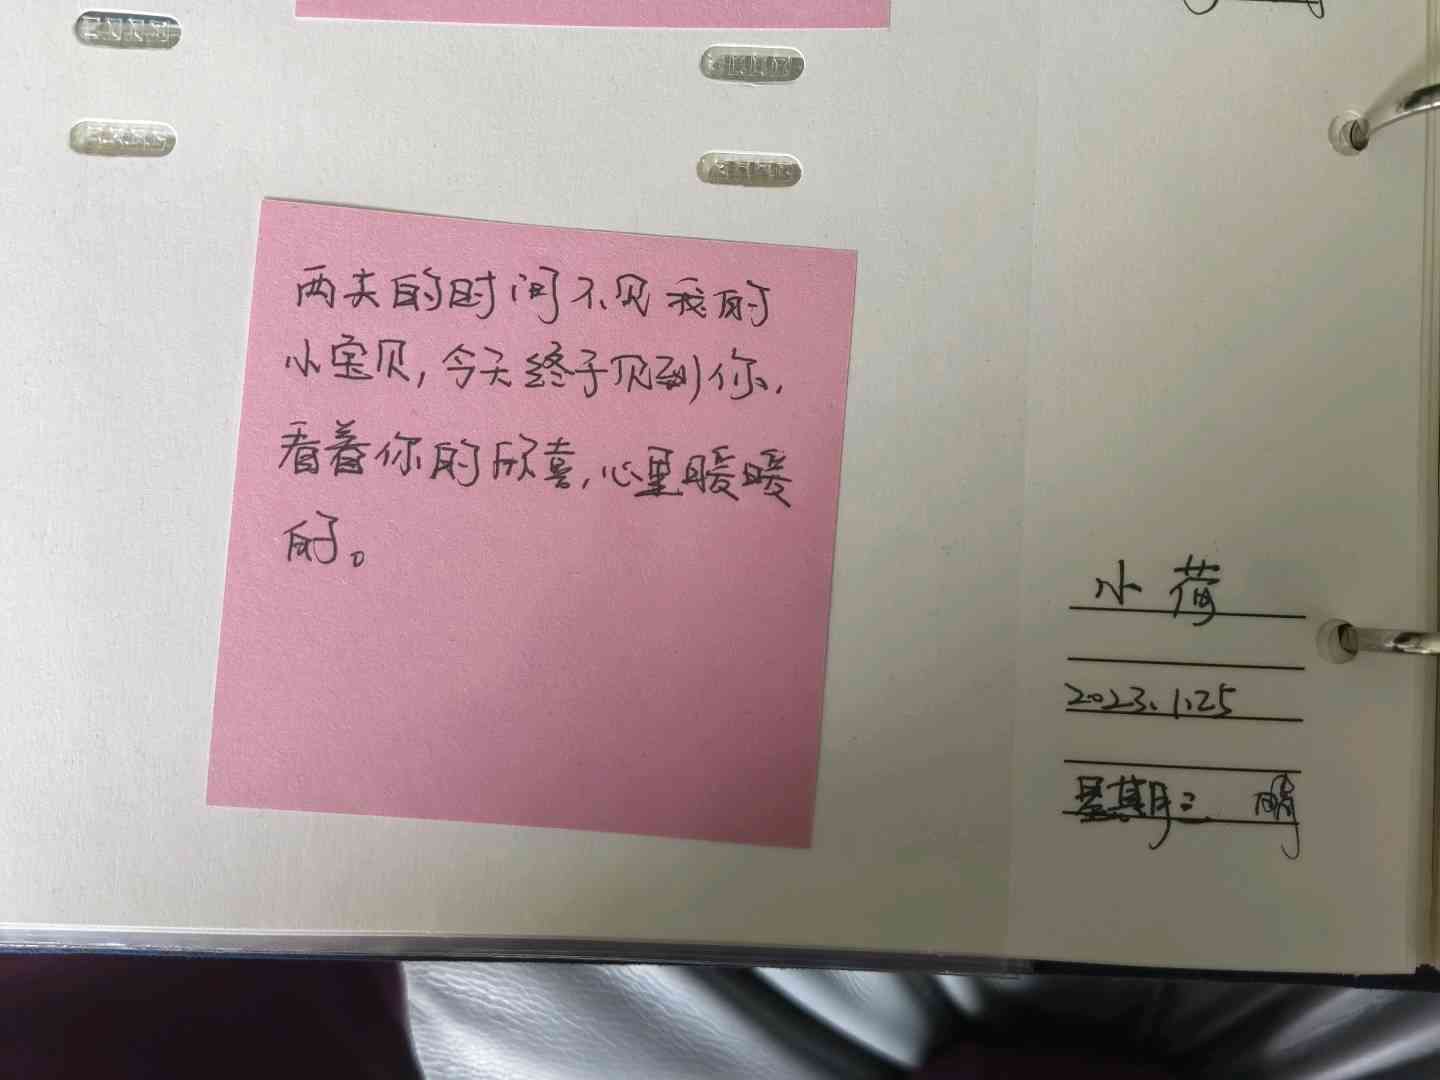 两天的时间不见我的
小宝贝，今天终于见到你，
看着你的欣喜，心里暖暖
的。
小荷
2023.1.25
星期三 晴